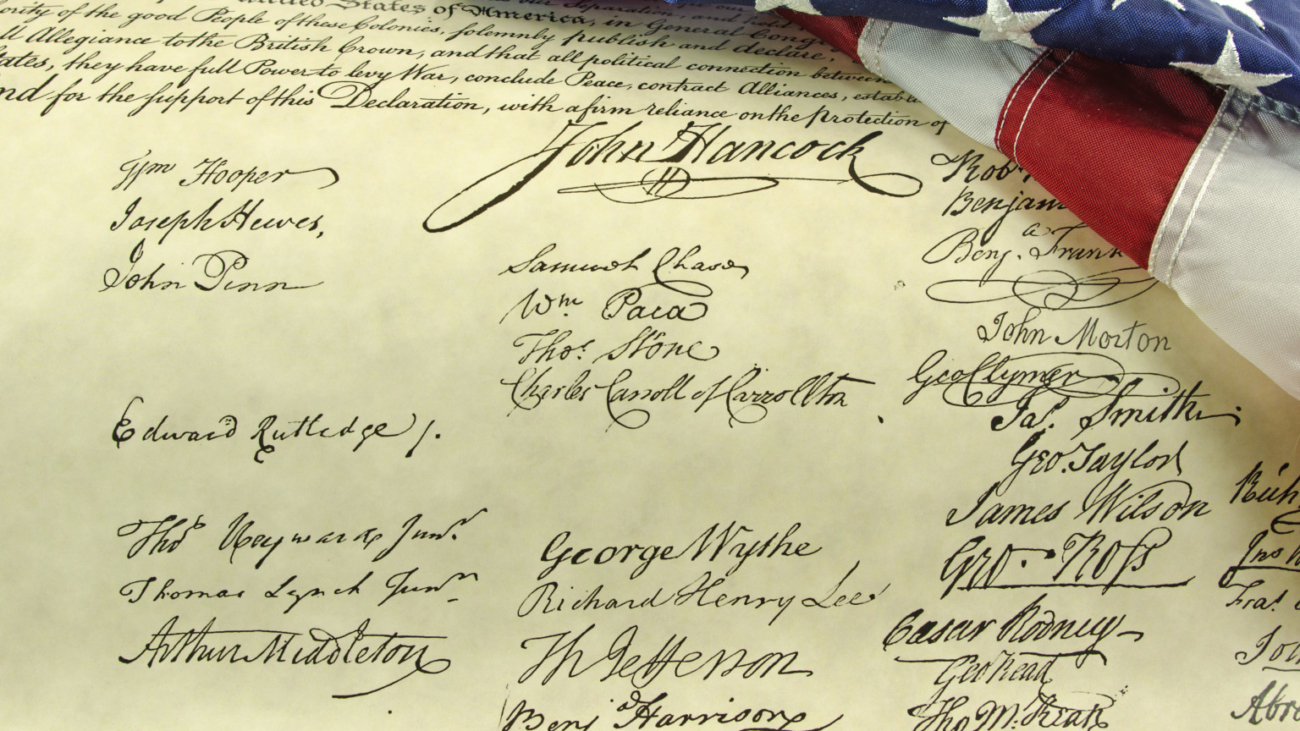 United States of America, in General Cong
ority of the good People of these Colonies, solemnly publish and declare,
ll Allegiance to the British Crown, and that all political connection between
tates, they have full Power to levy War, conclude Peace, contract Alliances, establ
nd for the support of this Declaration, with a firm reliance on the protection of
John Hancock
Wm Hooper
Joseph Hewes,
John Penn
Edward Rutledge /.
Thos Heyward Junr.
Thomas Lynch Junr.
Arthur Middleton
Samuel Chase
Wm. Paca
Thos. Stone
Charles Carroll of Carrollton
George Wythe
Richard Henry Lee
Th Jefferson
Benj a Harrison
Rob
Benjam
Benj. Frank
John Morton
Geo Clymer
Jas. Smith.
Geo. Taylor
James Wilson
Geo. Ross
Caesar Rodney
Geo Read
Tho M:Kean
Rich
Fras.
Abra